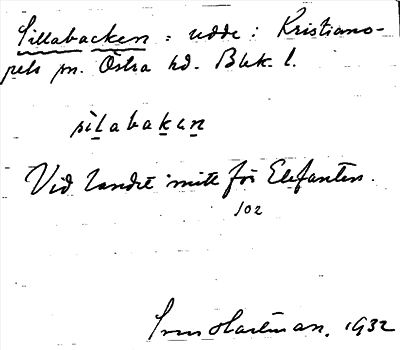 Sillabacken : udde : Kristiano-
pels sn. Östra hd. Blek. l.
silabakan
Vid landet mitt för Elefanten.
102
Sven Hartman. 1932